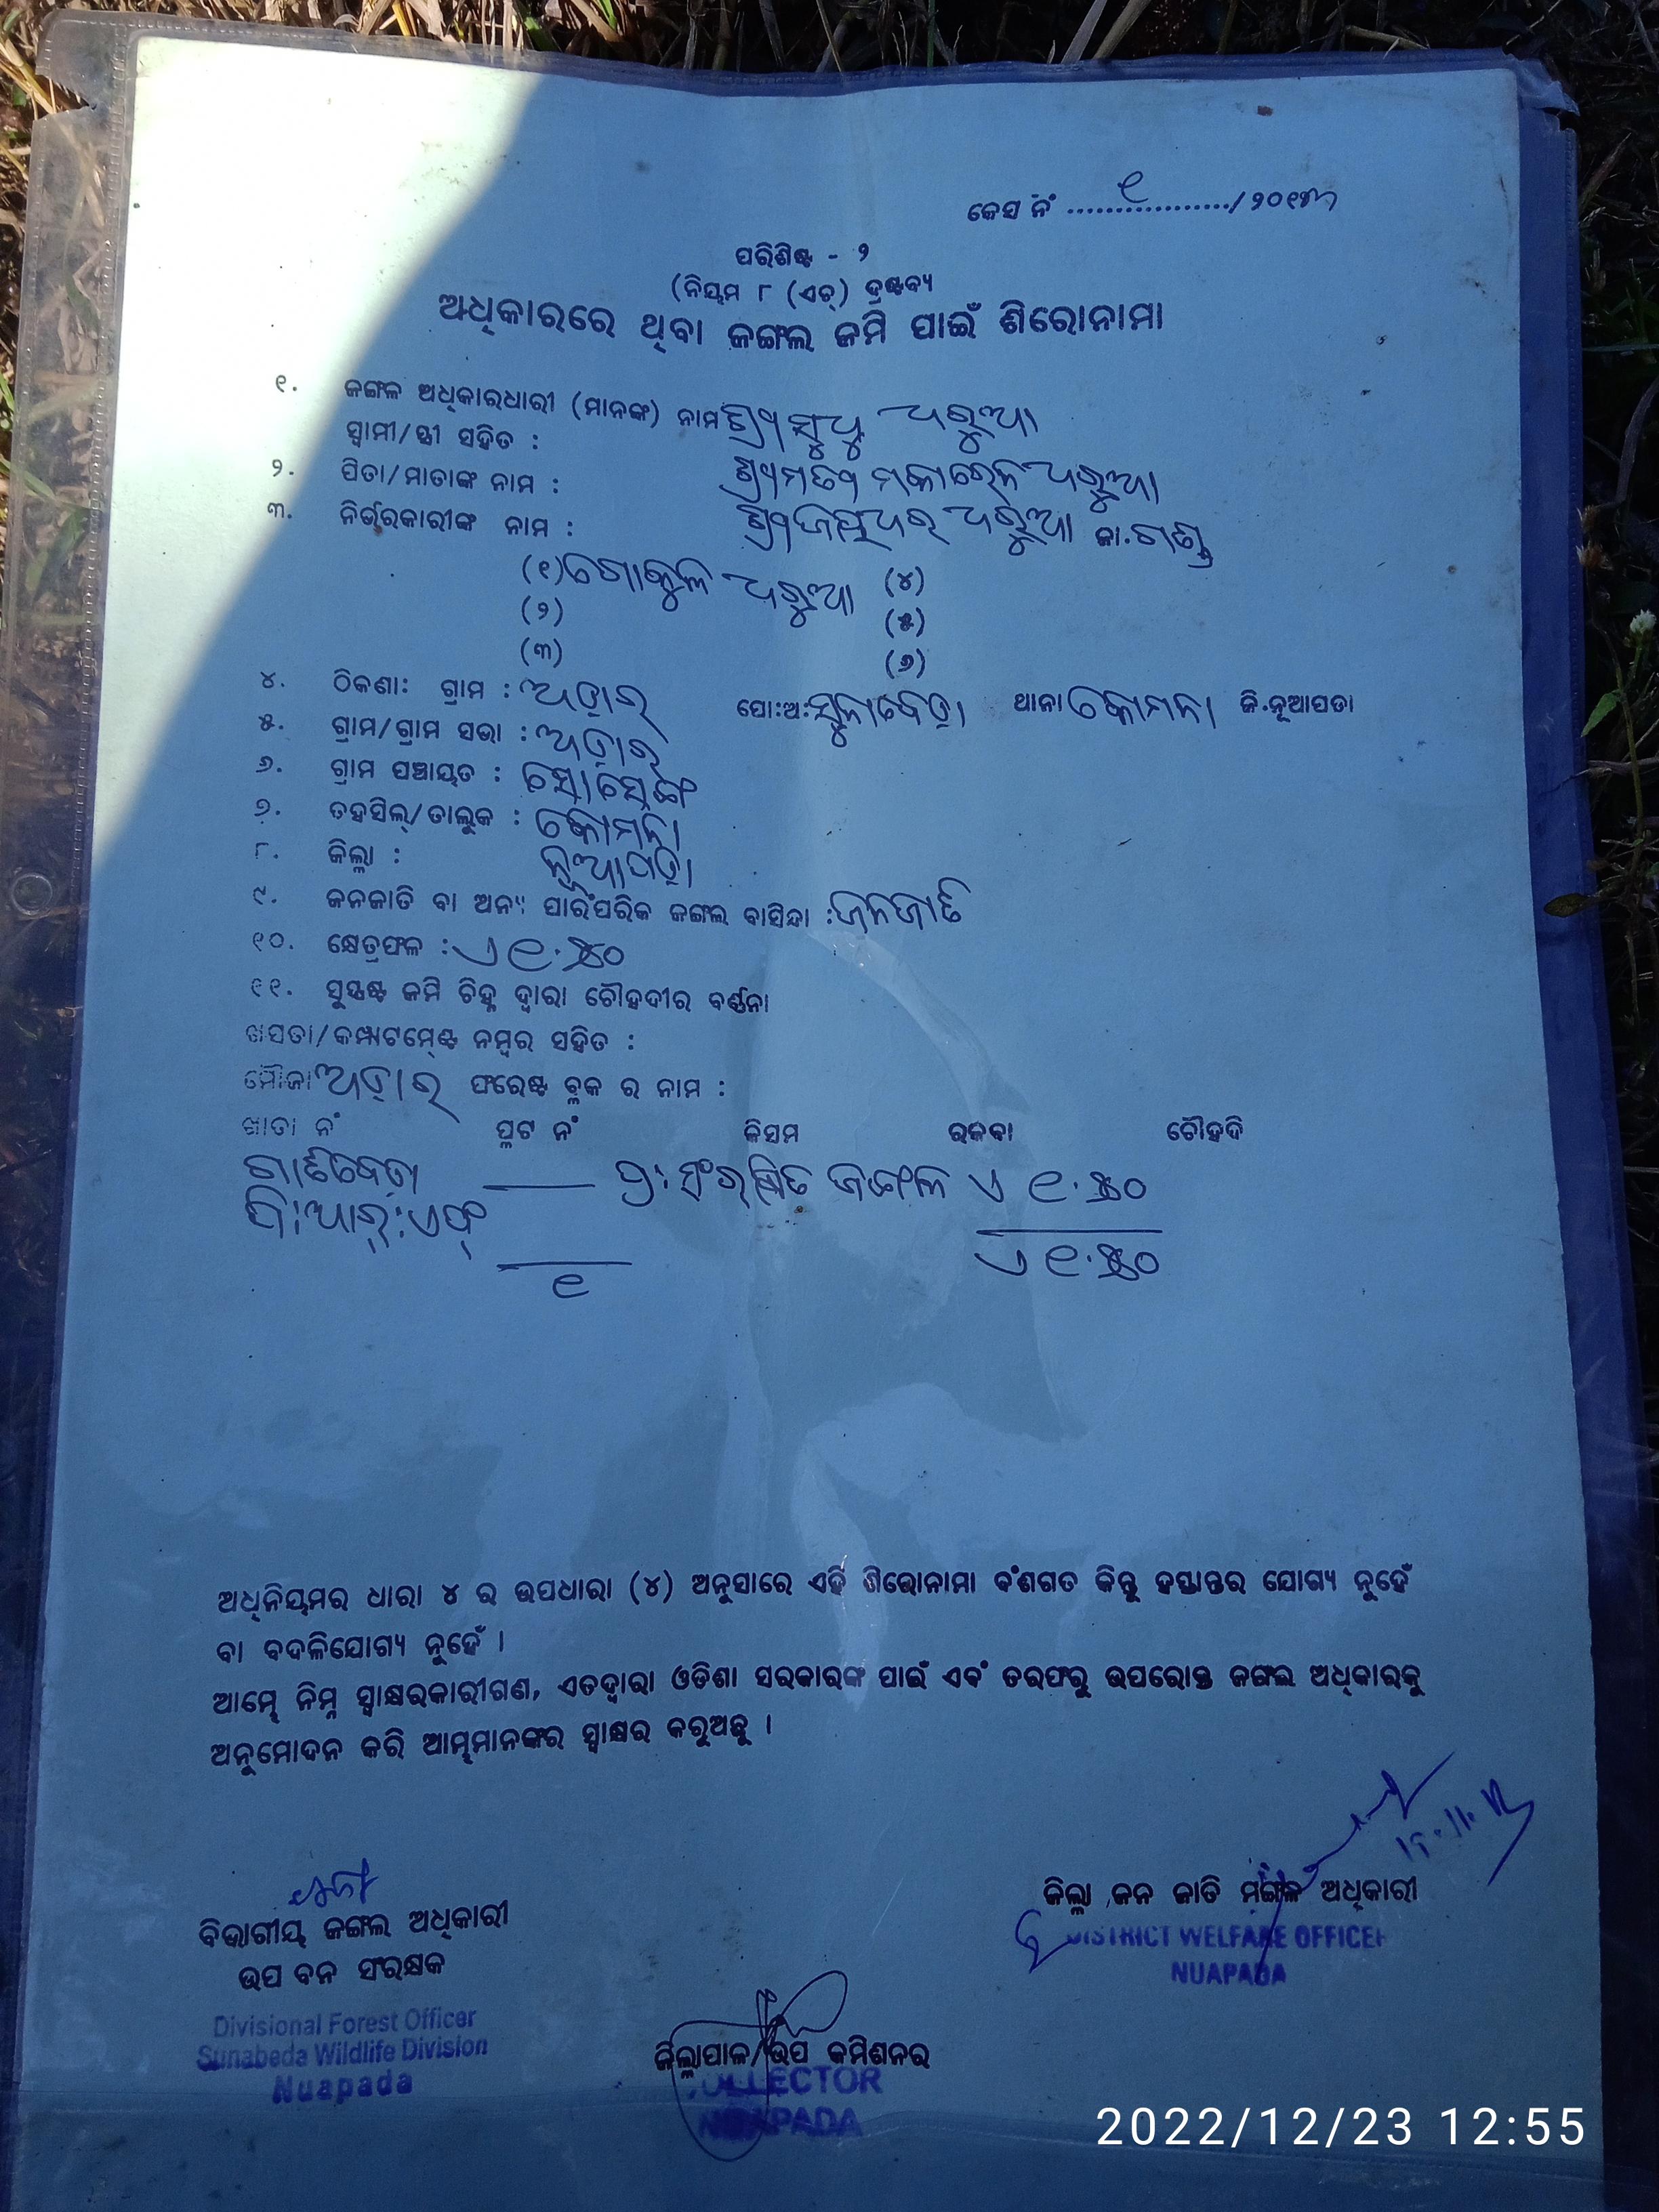 କେସ ନଂ ........୧........./୨୦୧୩
ପରିଶିଷ୍ଟ - ୨
(ନିୟମ ୮ (ଏଚ୍) ଦ୍ରଷ୍ଟବ୍ୟ
ଅଧିକାରରେ ଥିବା ଜଙ୍ଗଲ ଜମି ପାଇଁ ଶିରୋନାମା
୧. ଜଙ୍ଗଳ ଅଧିକାରଧାରୀ (ମାନଙ୍କ) ନାମ ଧରୁଆ
ସ୍ଵାମୀ/ସ୍ତ୍ରୀ ସହିତ :
୨. ପିତା/ମାତାଙ୍କ ନାମ : ଧରୁଆ
୩. ନିର୍ଭରକାରୀଙ୍କ ନାମ : ଧରୁଆ ଜା.ଗଣ୍ଡ
(୧) ଗୋକୁଳ ଧରୁଆ (୪)
(୨) (୫)
(୩) (୬)
୪. ଠିକଣା: ଗ୍ରାମ : ଅଡ଼ାର୍ ପୋ:ଅ: ସୁନାବେଡ଼ା ଥାନା କୋମନା ଜି.ନୂଆପଡା
୫. ଗ୍ରାମ/ଗ୍ରାମ ସଭା : ଅଡ଼ାର୍
୬. ଗ୍ରାମ ପଞ୍ଚାୟତ : ସୋସେଙ୍ଗ
୭. ତହସିଲ୍/ତାଲୁକ : କୋମନା
୮. ଜିଲ୍ଲା : ନୂଆପଡ଼ା
୯. ଜନଜାତି ବା ଅନ୍ୟ ପାରଂପରିକ ଜଙ୍ଗଲ ବାସିନ୍ଦା : ଜନଜାତି
୧୦. କ୍ଷେତ୍ରଫଳ : ଏ ୧.୫୦
୧୧. ସୁସ୍ପଷ୍ଟ ଜମି ଚିହ୍ନ ଦ୍ଵାରା ଚୌହଦୀର ବର୍ଣ୍ଣନା
ଖସଡା/କମ୍ପାଟମେଣ୍ଟ ନମ୍ବର ସହିତ :
ମୌଜା ଅଡ଼ାର୍ ଫରେଷ୍ଟ ବ୍ଲକ ର ନାମ :
ଖାତା ନଂ ପ୍ଲଟ ନଂ କିସମ ରକବା ଚୌହଦି
ଗାଣ୍ଡିବେଡ଼ା ପ୍ର: ସଂରକ୍ଷିତ ଜଙ୍ଗଲ ଏ ୧.୫୦
ପି:ଆର୍:ଏଫ୍
୧ ଏ ୧.୫୦
ଅଧିନିୟମର ଧାରା ୪ ର ଉପଧାରା (୪) ଅନୁସାରେ ଏହି ଶିରୋନାମା ବଂଶଗତ କିନ୍ତୁ ହସ୍ତାନ୍ତର ଯୋଗ୍ୟ ନୁହେଁ
ବା ବଦଳିଯୋଗ୍ୟ ନୁହେଁ ।
ଆମ୍ଭେ ନିମ୍ନ ସ୍ଵାକ୍ଷରକାରୀଗଣ, ଏତଦ୍ଵାରା ଓଡିଶା ସରକାରଙ୍କ ପାଇଁ ଏବଂ ତରଫରୁ ଉପରୋକ୍ତ ଜଙ୍ଗଲ ଅଧିକାରକୁ
ଅନୁମୋଦନ କରି ଆମ୍ଭମାନଙ୍କର ସ୍ଵାକ୍ଷର କରୁଅଛୁ ।
ଜିଲ୍ଲା ଜନ ଜାତି ମଙ୍ଗଳ ଅଧିକାରୀ
DISTRICT WELFARE OFFICER
NUAPADA
ବିଭାଗୀୟ ଜଙ୍ଗଲ ଅଧିକାରୀ
ଉପ ବନ ସଂରକ୍ଷକ
Divisional Forest Officer
Sunabeda Wildlife Division
Nuapada
ଜିଲ୍ଲାପାଳ/ଉପ କମିଶନର
COLLECTOR
NUAPADA
2022/12/23 12:55